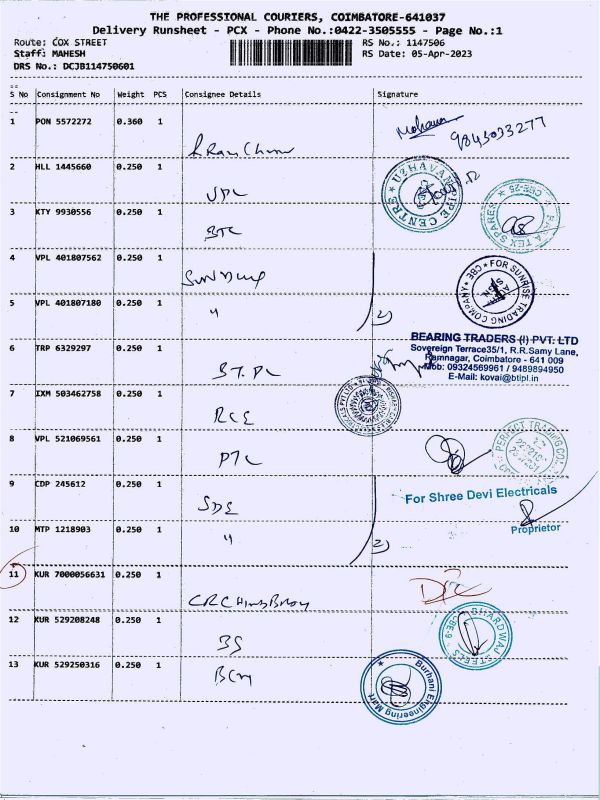 THE PROFESSIONAL COURIERS, COIMBATORE-641037
Delivery Runsheet - PCX - Phone No.:0422-3505555 - Page No.:1
Route: COX STREET
RS No.: 1147506
Staff: MAHESH
RS Date: 05-Apr-2023
DRS No.: DCJB114750601
S No Consignment No Weight PCS Consignee Details Signature
1 PON 5572272 0.360 1
Mohana 9843033277
2 HLL 1445660 0.250 1
UPC
UZHAVAN PIPE CENTRE
3 KTY 9930556 0.250 1
BTC
TEX SPARES CBE-25
4 VPL 401807562 0.250 1
FOR SUNRISE TRADING COMPANY CBE
5 VPL 401807180 0.250 1
"
2)
BEARING TRADERS (I) PVT. LTD
Sovereign Terrace35/1, R.R.Samy Lane,
Ramnagar, Coimbatore - 641 009
Mob: 09324569961 / 9489894950
E-Mail: kovai@btipl.in
6 TRP 6329297 0.250 1
BT.PL
7 IXM 503462758 0.250 1
RCE
8 VPL 521069561 0.250 1
PTC
PERFECT TRADING CO.
9 CDP 245612 0.250 1
SDE
For Shree Devi Electricals
Proprietor
10 MTP 1218903 0.250 1
"
2)
11 KUR 7000056631 0.250 1
12 KUR 529208248 0.250 1
BS
BHARDWAJ STEELS CBE-9
13 KUR 529250316 0.250 1
BEM
Burhani Engineering Mart